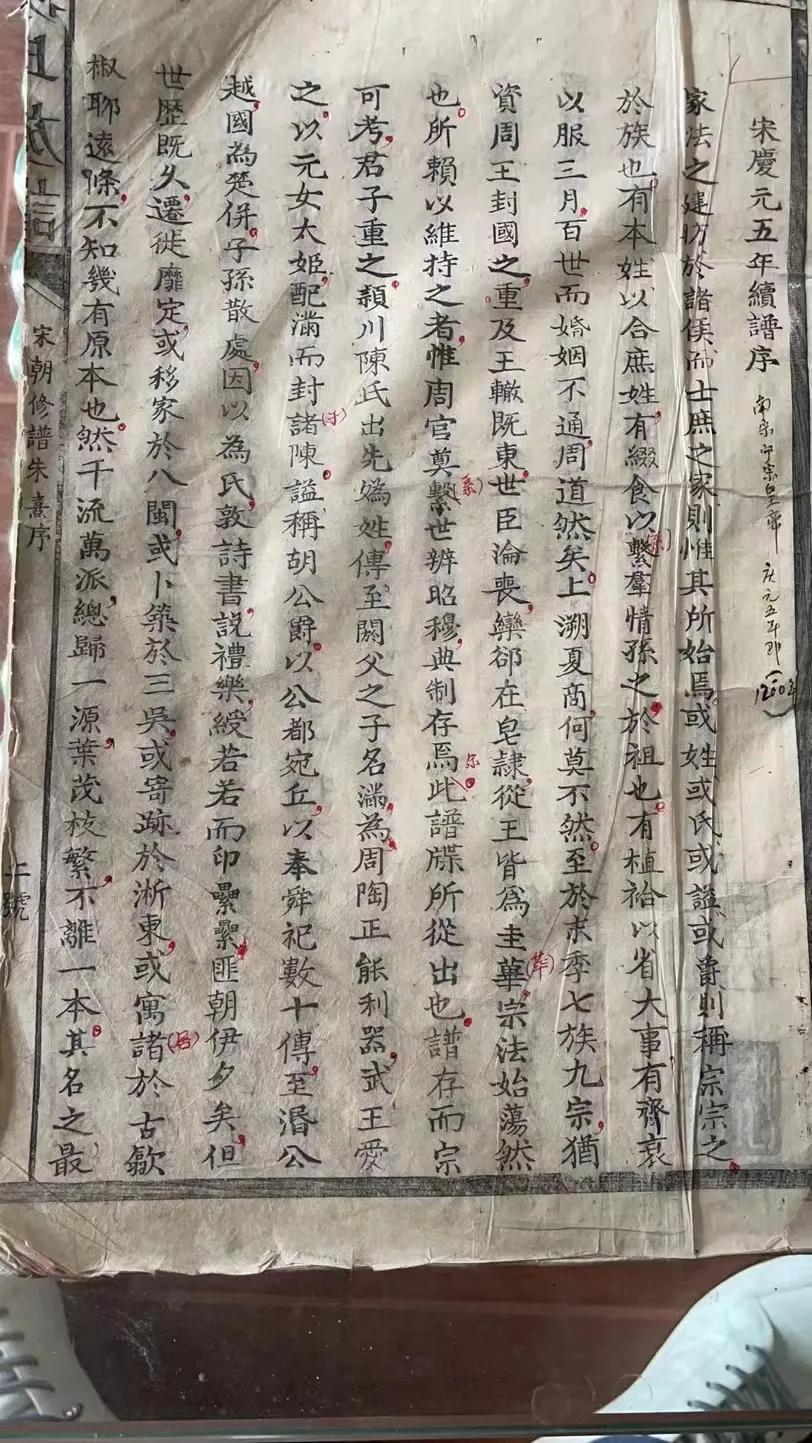 宋慶元五年續譜序
南宋宁宗皇帝 庆元五年即(1200年)
家法之建昉於諸侯而士庶之家則惟其所始焉或姓或氏或諡或爵則稱宗宗之
於族也有本姓以合庶姓有綴食以繫羣情孫之於祖也有植祫以省大事有齊衰
(系)
以服三月百世而婚姻不通周道然矣上溯夏商何莫不然至於末季七族九宗猶
資周王封國之重及王轍既東世臣淪喪欒郤在皂隷從王皆爲圭華宗法始蕩然
(荜)
也所賴以維持之者惟周官奠繫世辨昭穆典制存焉此譜牒所從出也譜存而宗
(系)
尔
可考君子重之頴川陳氏出先媯姓傳至閼父之子名滿為周陶正能利器武王愛
之以元女太姬配滿而封諸陳諡稱胡公爵以公都宛丘以奉舜祀數十傳至湣公
(于)
越國為楚併子孫散處因以為氏敦詩書説禮樂綬若若而印纍纍匪朝伊夕矣但
世歴既久遷徙靡定或移家於八閩或卜築於三吳或寄跡於淅東或寓諸於古歙
(居)
椒聊遠條不知幾有原本也然千流萬派總歸一源葉茂枝繁不離一本其名之最
宋朝修譜朱熹序
號